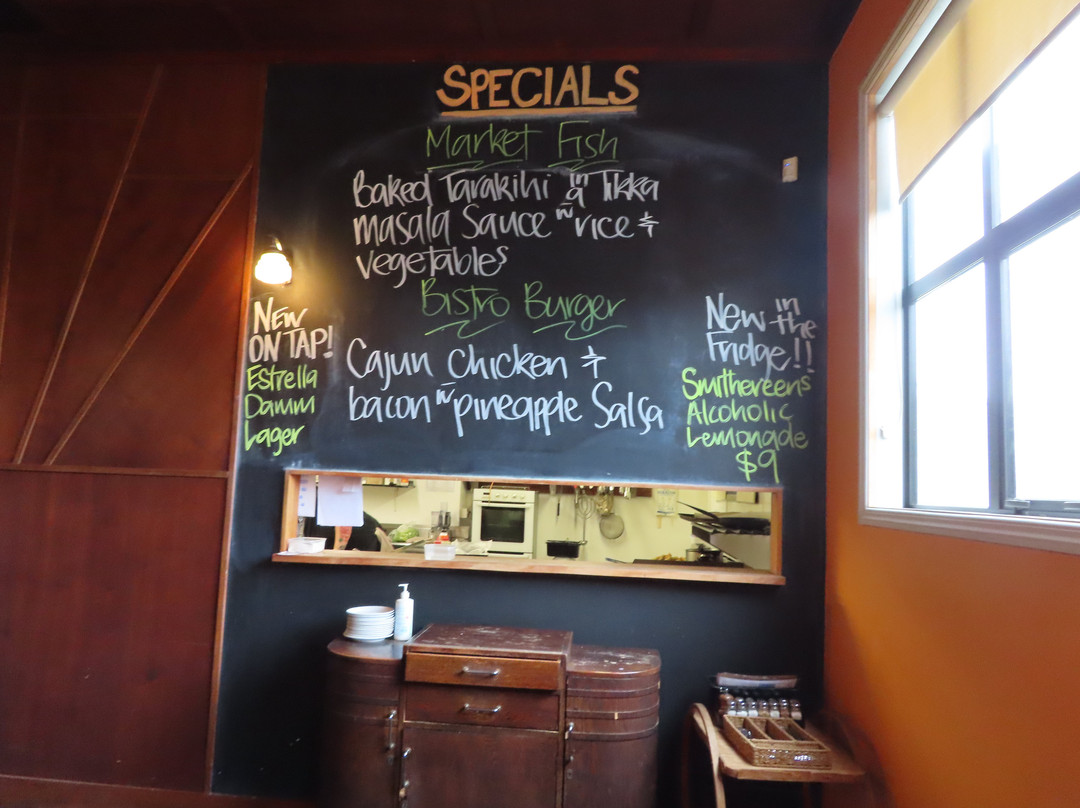 SPECIALS
Market Fish
Baked Tarakihi in a Tikka
masala Sauce w rice &
vegetables
Bistro Burger
Cajun Chicken &
bacon w pineapple Salsa
NEW
ON TAP!
Estrella
Damm
Lager
New in the
Fridge!!
Smithereens
Alcoholic
Lemonade
$9